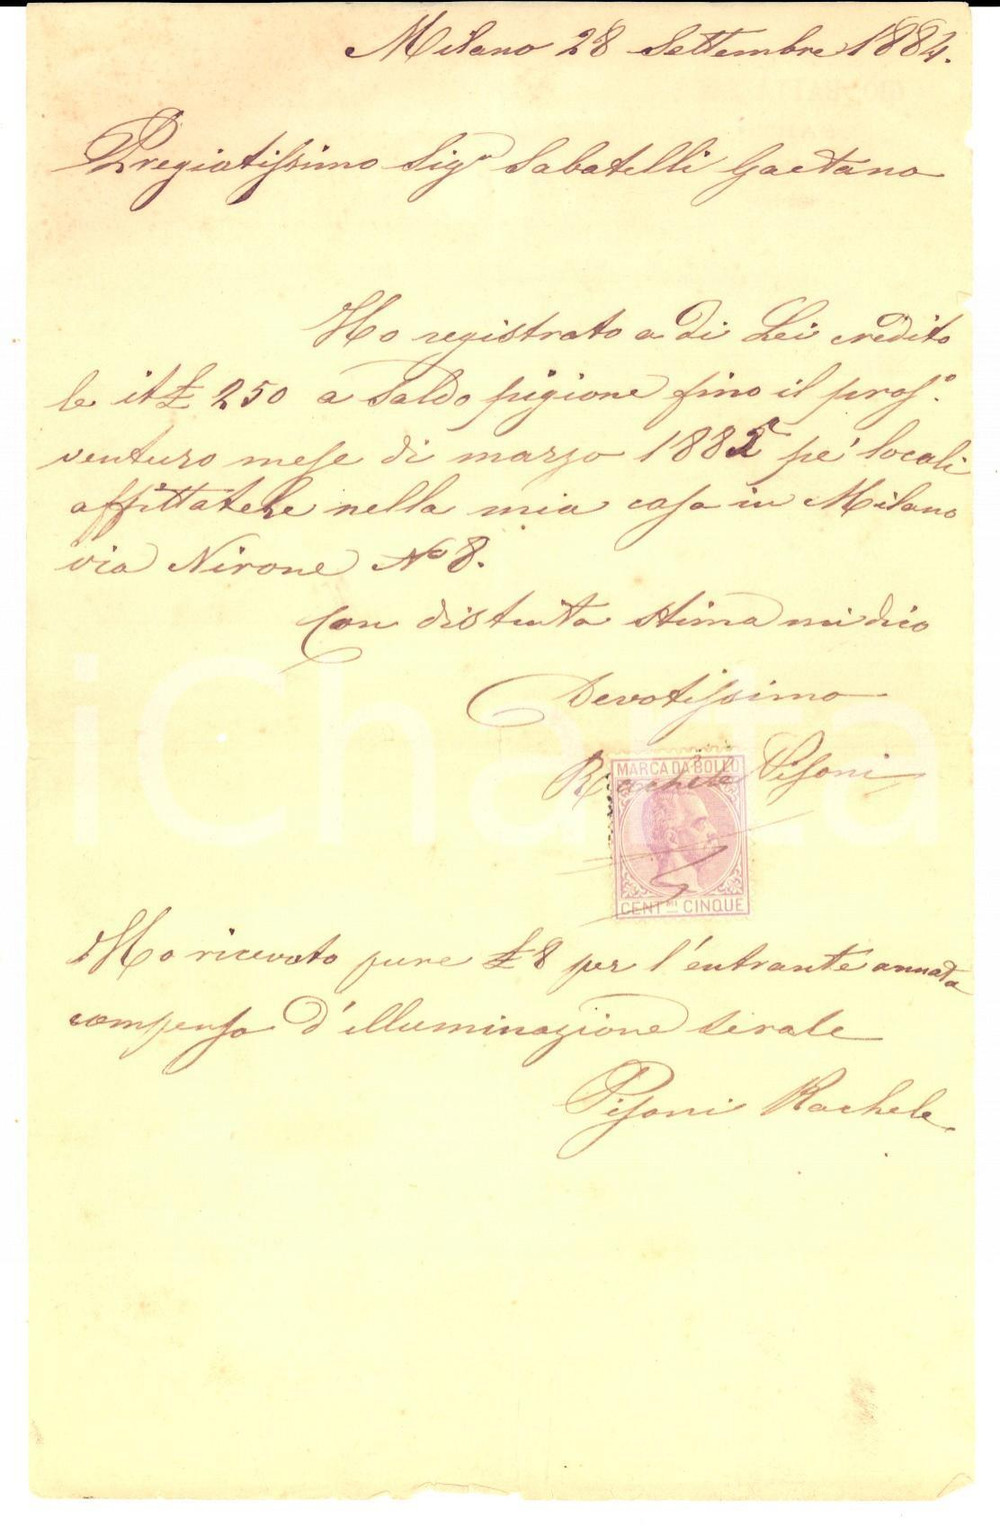 Milano 28 Settembre 1884.
Pregiatissimo Sigr Sabatelli Gaetano
Ho registrato a di Lei credito
le it£ 250 a saldo pigione fino il pross.o
venturo mese di marzo 1885 pe' locali
affittatele nella mia casa in Milano
via Nirone No 8.
Con distinta stima mi dico
Devotissimo
Rachele Pisoni
MARCA DA BOLLO
CENT.MI CINQUE
Ho ricevuto pure £ 8 per l'entrante annata
compenso d'illuminazione serale
Pisoni Rachele
iCharta